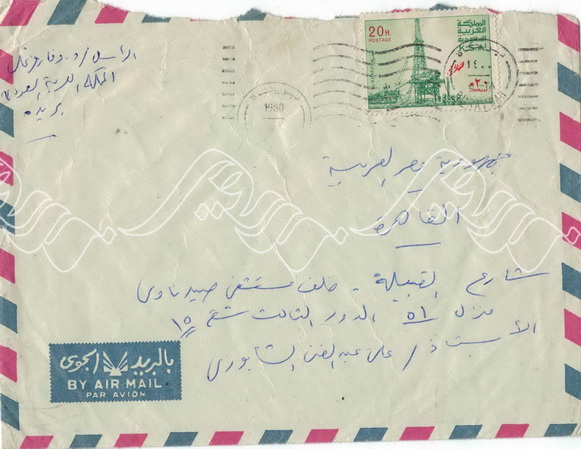 الراسل / د. وفاء
المملكة العربية السعودية
بريدة
20H
POSTAGE
المملكة
العربية
السعودية
بريد
١٤٠٠
1980
جمهورية مصر العربية
القاهرة
شارع القبيلة - خلف مستشفى صيدناوى
منزل ٥١ الدور الثالث شقة ١٥
الأستاذ / على عبد الغنى الشابورى
بالبريد الجوى
BY AIR MAIL
PAR AVION